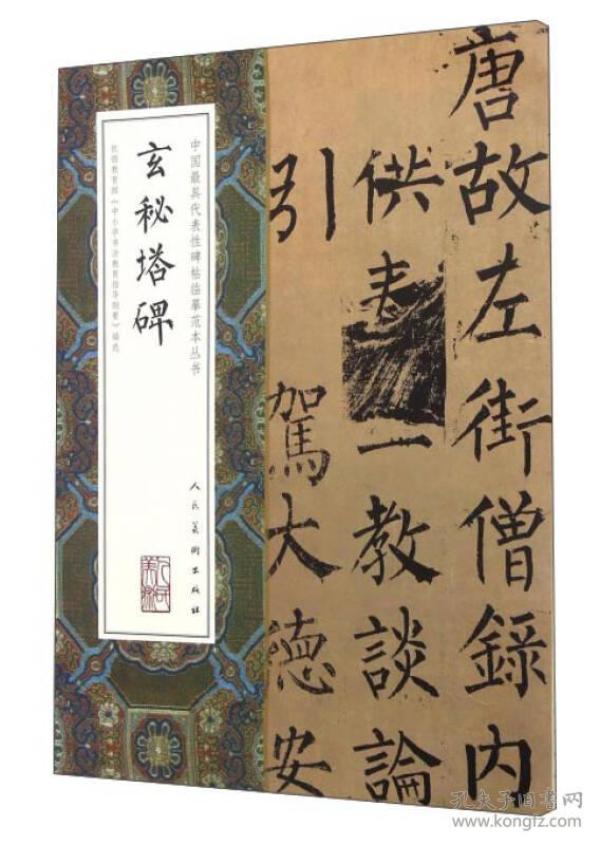 唐故左街僧録内
供奉一教談論
引駕大德安
中国最具代表性碑帖临摹范本丛书
玄秘塔碑
依据教育部《中小学书法教育指导纲要》编选
人民美术出版社
人民美术
孔夫子旧书网
www.kongfz.com